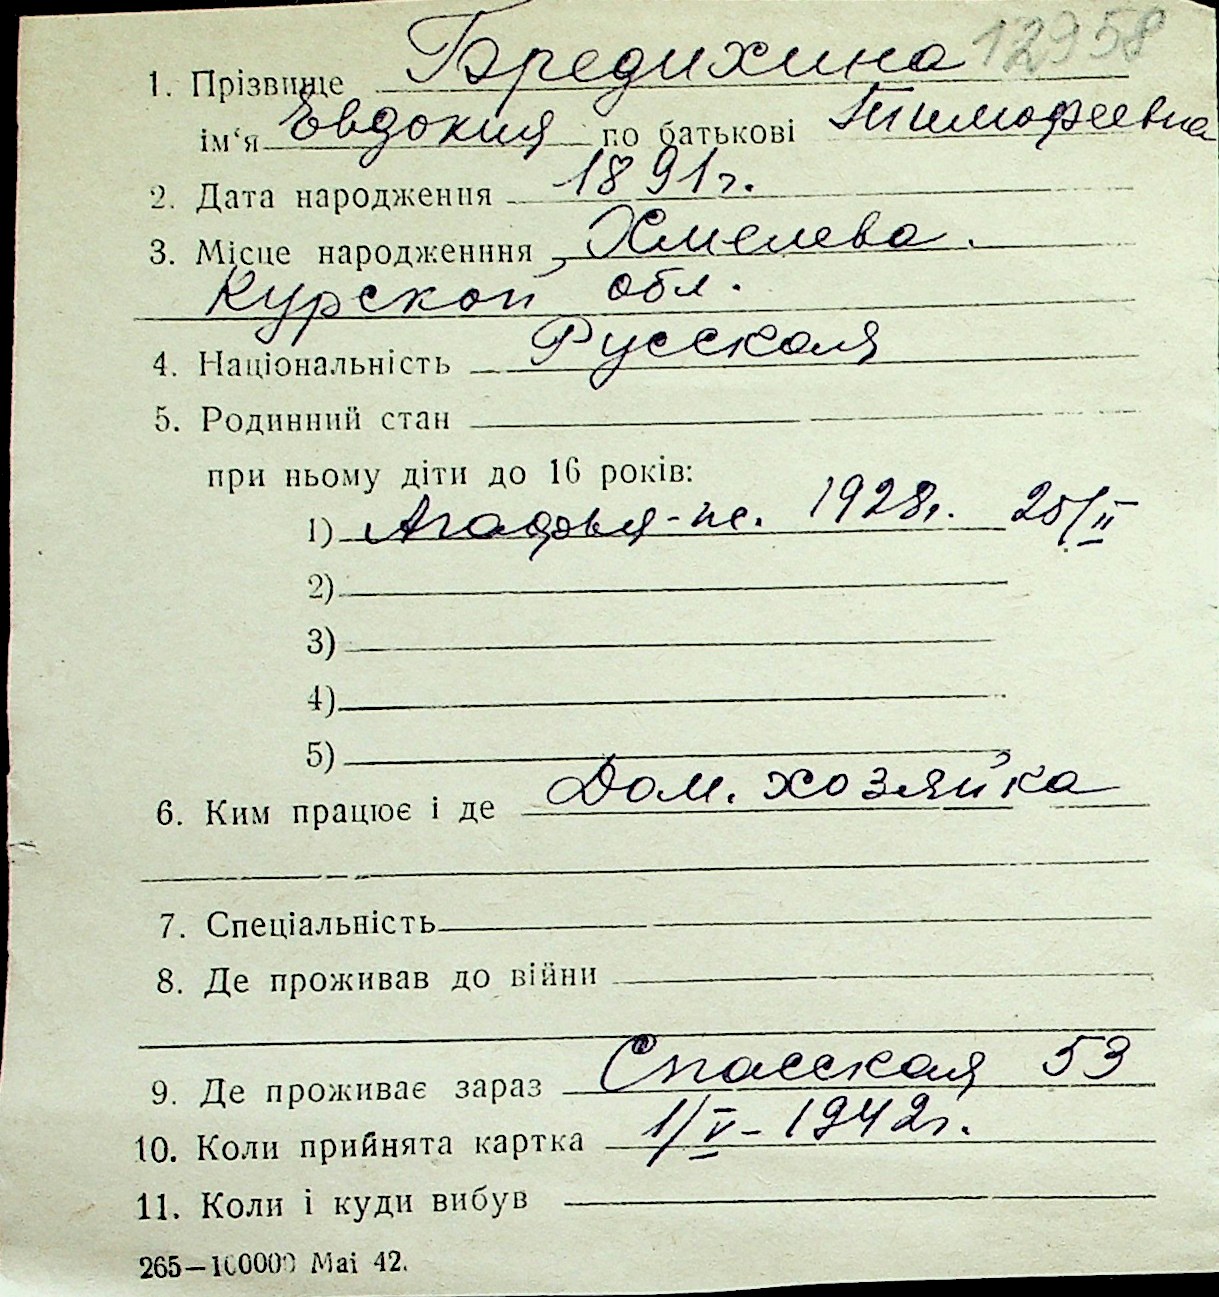 1. Прізвище Бредихина 12958
ім‘я Евдокия по батькові Тимофеевна
2. Дата народження 1891г.
3. Місце народженння Хмелева.
Курской обл.
4. Національність Русская
5. Родинний стан
при ньому діти до 16 років:
1) Агафья - 1928г. 25/II
2)
3)
4)
5)
6. Ким працює і де Дом. хозяйка
7. Спеціальність
8. Де проживав до війни
9. Де проживає зараз Спасская 53
10. Коли прийнята картка 1/V - 1942г.
11. Коли і куди вибув
265—100000 Mai 42.